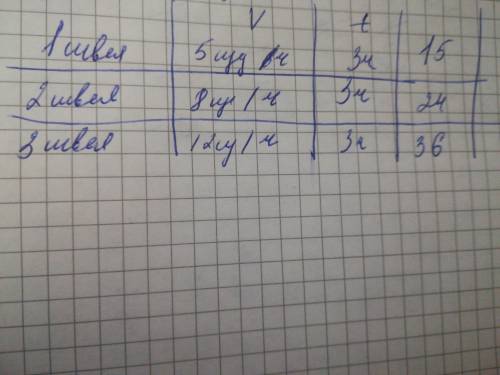 V t
1 швея 5 изд/ч 3ч 15
2 швея 8 из/ч 3ч 24
3 швея 12 из/ч 3ч 36